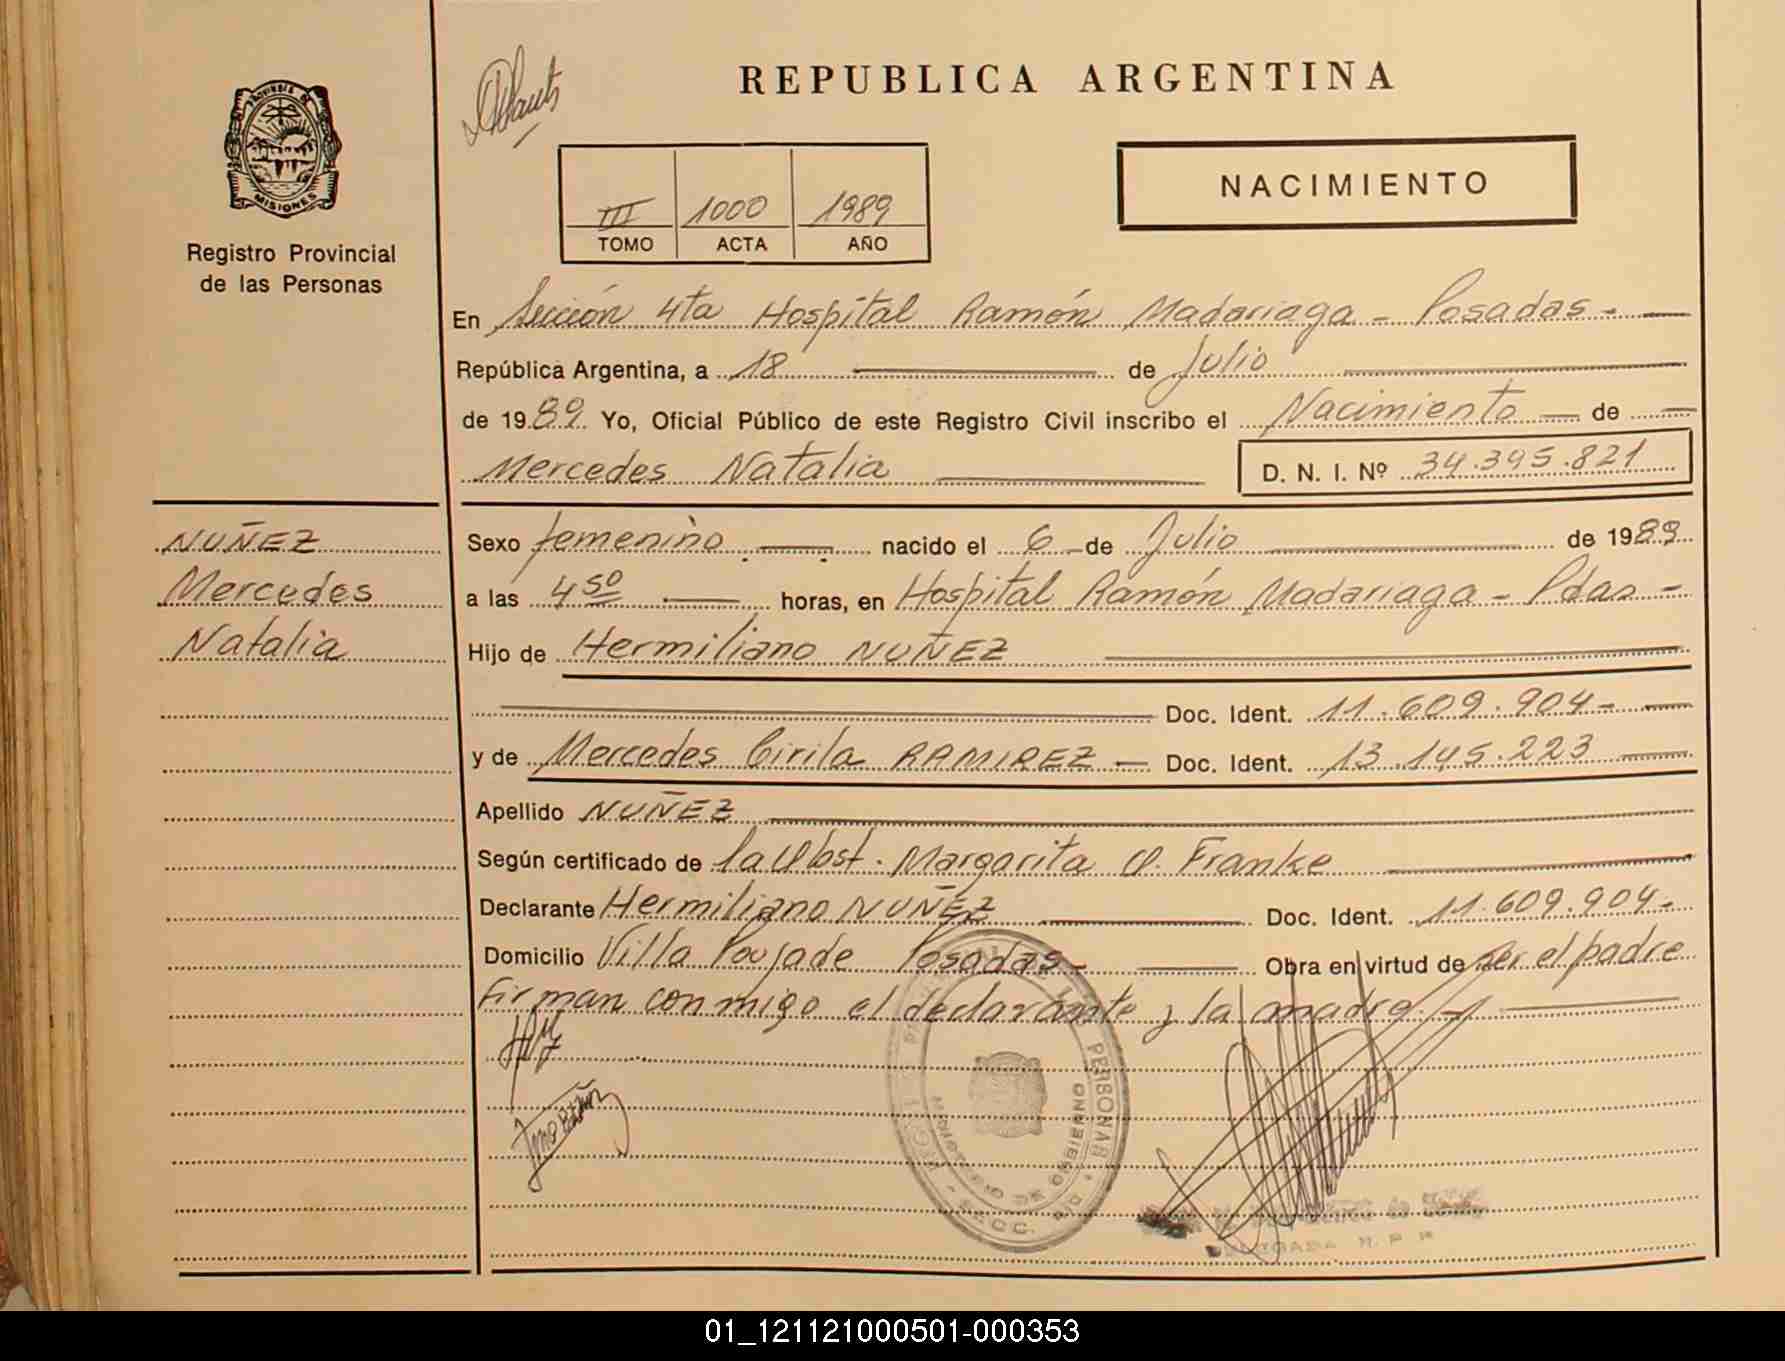 REPUBLICA ARGENTINA
PROVINCIA DE
MISIONES
Registro Provincial
de las Personas
III 1000 1989
TOMO ACTA AÑO
NACIMIENTO
En Sección 4ta Hospital Ramón Madariaga - Posadas -
República Argentina, a 18 de Julio
de 1989 Yo, Oficial Público de este Registro Civil inscribo el Nacimiento de
Mercedes Natalia D. N. I. Nº 34.395.821
NUÑEZ
Mercedes
Natalia
Sexo femenino nacido el 6 de Julio de 1989
a las 4 50 horas, en Hospital Ramón Madariaga - Pdas -
Hijo de Hermiliano NUÑEZ
Doc. Ident. 11.609.904-
y de Mercedes Cirila RAMIREZ - Doc. Ident. 13.145.223
Apellido NUÑEZ
Según certificado de la Obst. Margarita O. Franke
Declarante Hermiliano NUÑEZ Doc. Ident. 11.609.904-
Domicilio Villa Poujade Posadas - Obra en virtud de ser el padre
Firman conmigo el declarante y la madre.-
PERSONAS
MINISTERIO DE GOBIERNO
01_121121000501-000353